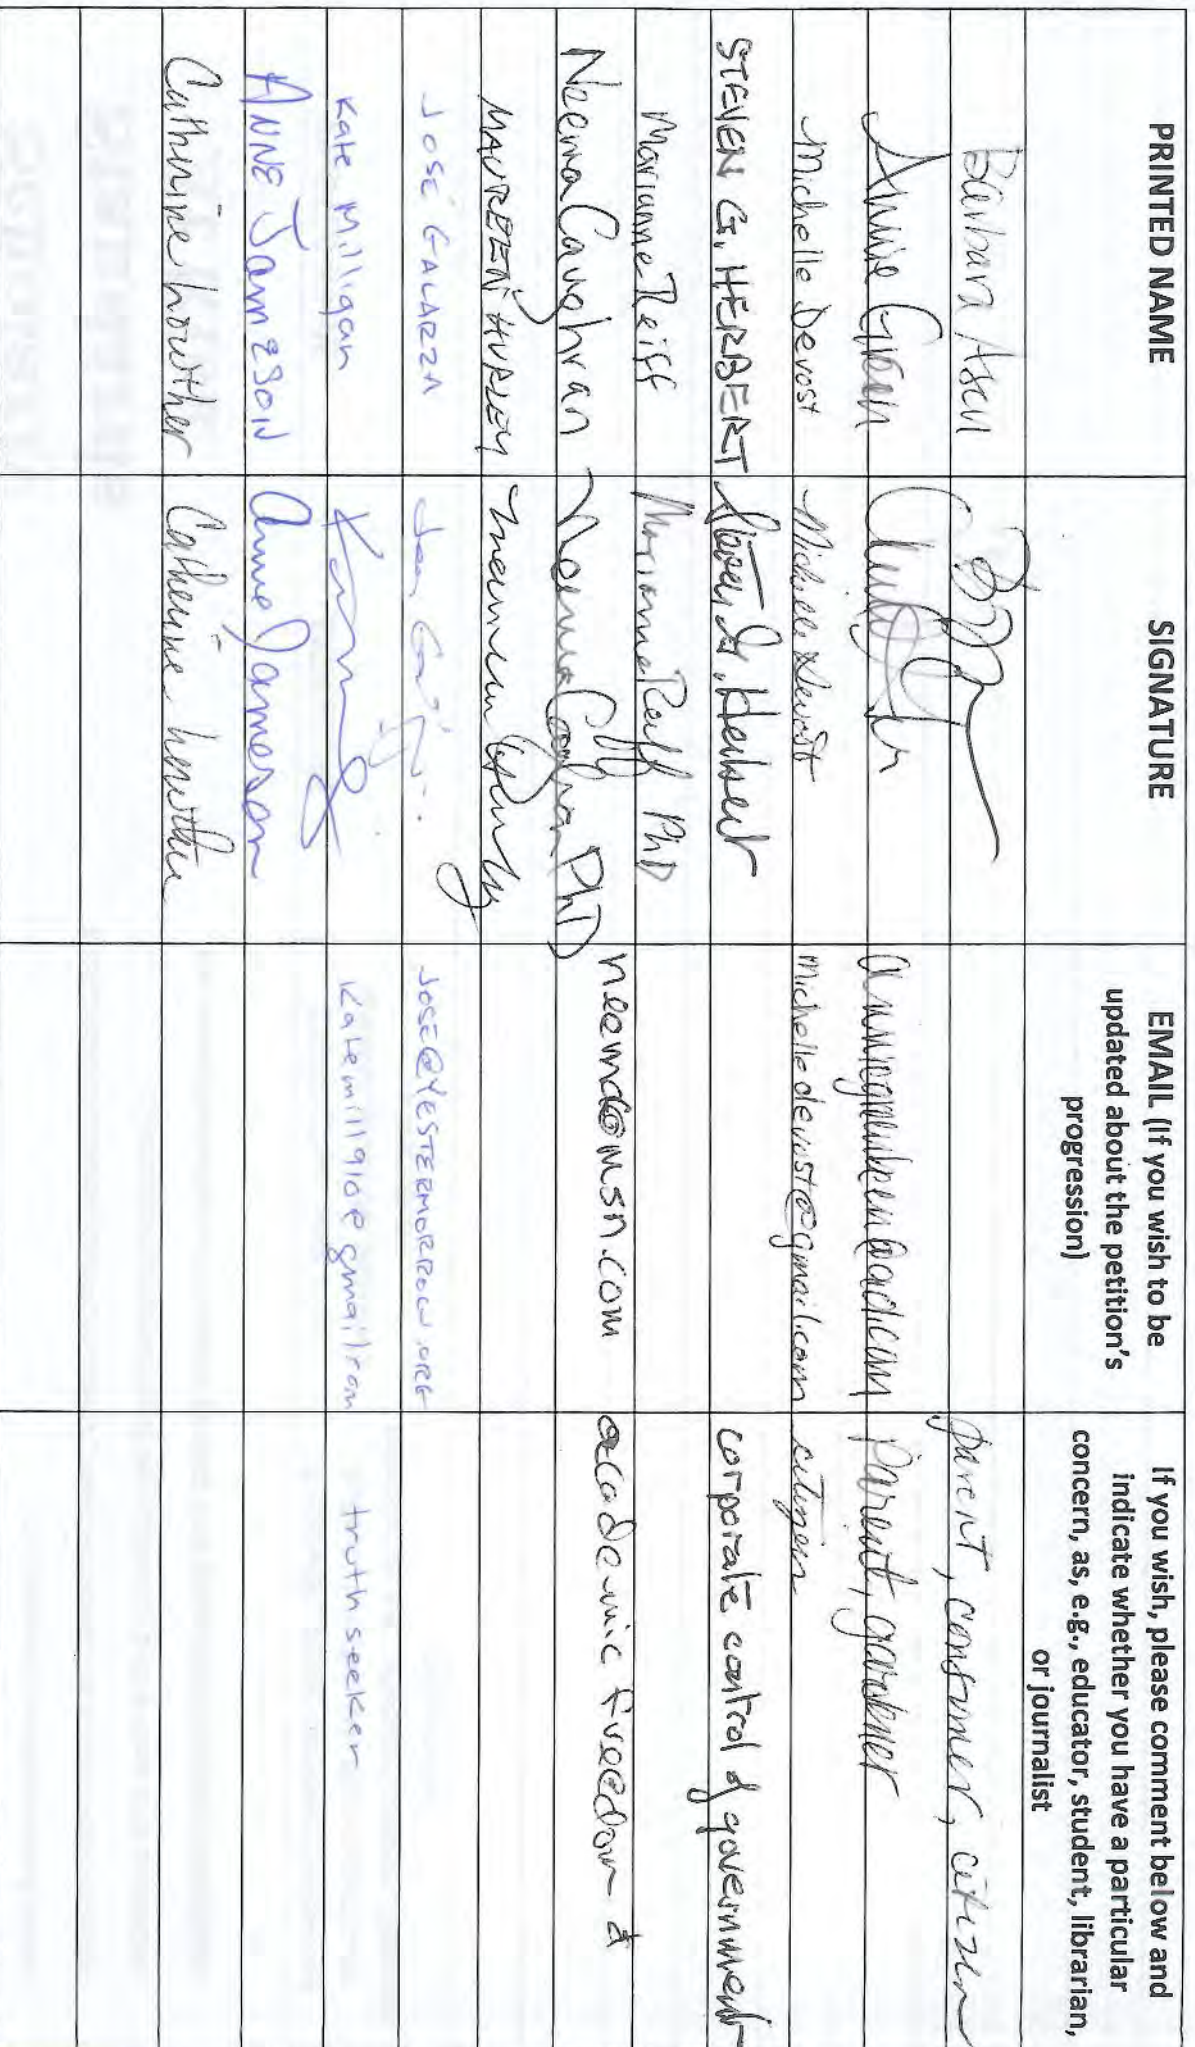 PRINTED NAME
SIGNATURE
EMAIL (If you wish to be
updated about the petition's
progression)
If you wish, please comment below and
indicate whether you have a particular
concern, as, e.g., educator, student, librarian,
or journalist
Barbara Asen
parent, consumer, citizen
Annie Green
parent, gardener
Michelle Devost
Michelle Devost
michelledevost@gmail.com
citizen
STEVEN G. HERBERT
Steven G. Herbert
corporate control of government
Marianne Reiff
Marianne Reiff PhD
Neema Caughran
Neema Caughran PhD
neemac@msn.com
academic freedom &
MAUREEN HURLEY
Maureen Hurley
JOSÉ GALARZA
JOSE@YESTERMORROW.ORG
Kate Milligan
truth seeker
ANNE JAMESON
Anne Jameson
Catherine Lowther
Catherine Lowther